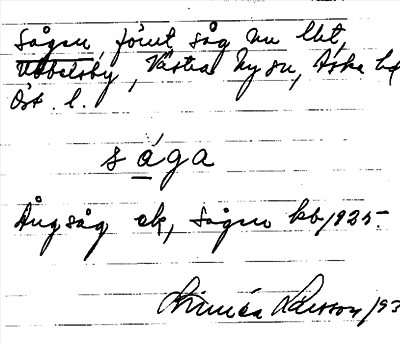 Sågen, förut såg nu lht,
Ubbelsby, Västra Ny sn, Aska hd
Öst. l.
såga
Ångsåg ek, Sågen kb/1925.
Linnéa Larsson/93